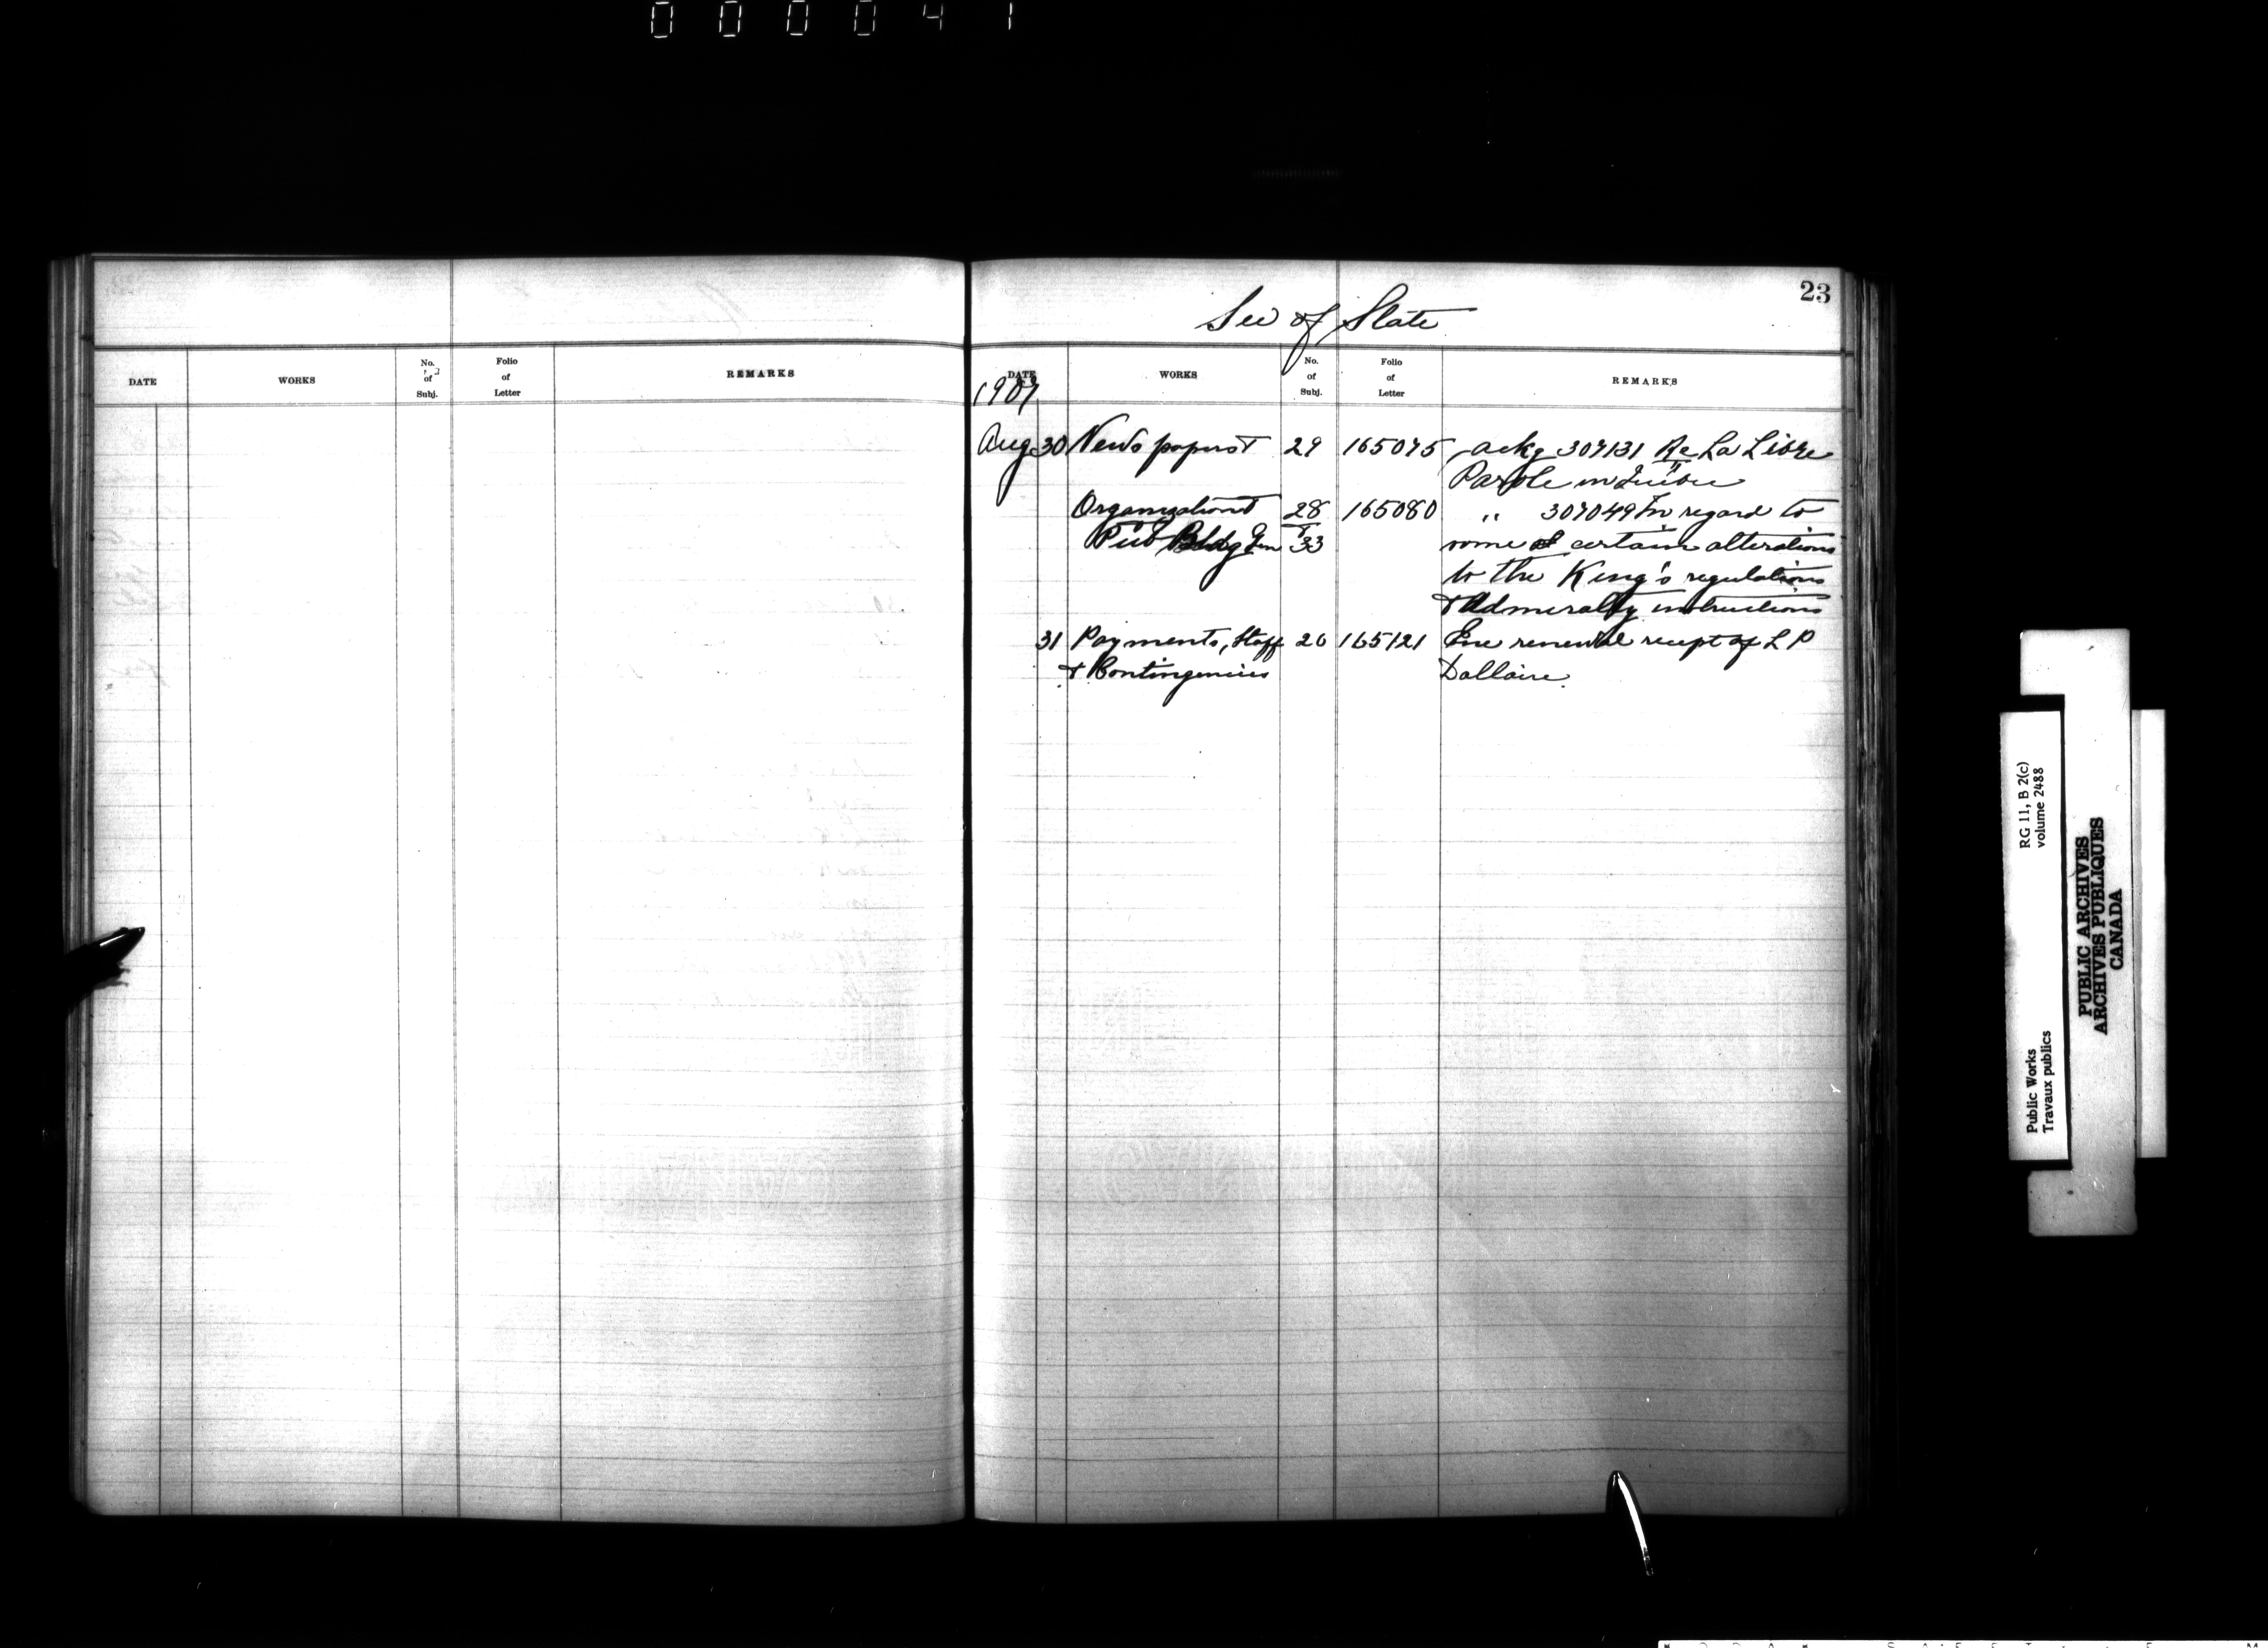 000041
23
Sec of State
DATE WORKS No. of Subj. Folio of Letter REMARKS
DATE WORKS No. of Subj. Folio of Letter REMARKS
1907
Aug 30 News papers 29 165075 ackg 307131 Re La Libre
Parole in Quebec
Organization 28 165080 " 307049 In regard to
Pub Bldg Gen 33 some certain alterations
to the King's regulations
& Admiralty instructions
31 Payments, Staff 26 165121 Enc renewal recept of L P
& Contingencies Dallaire.
RG 11, B 2(c)
volume 2488
Public Works
Travaux publics
PUBLIC ARCHIVES
ARCHIVES PUBLIQUES
CANADA